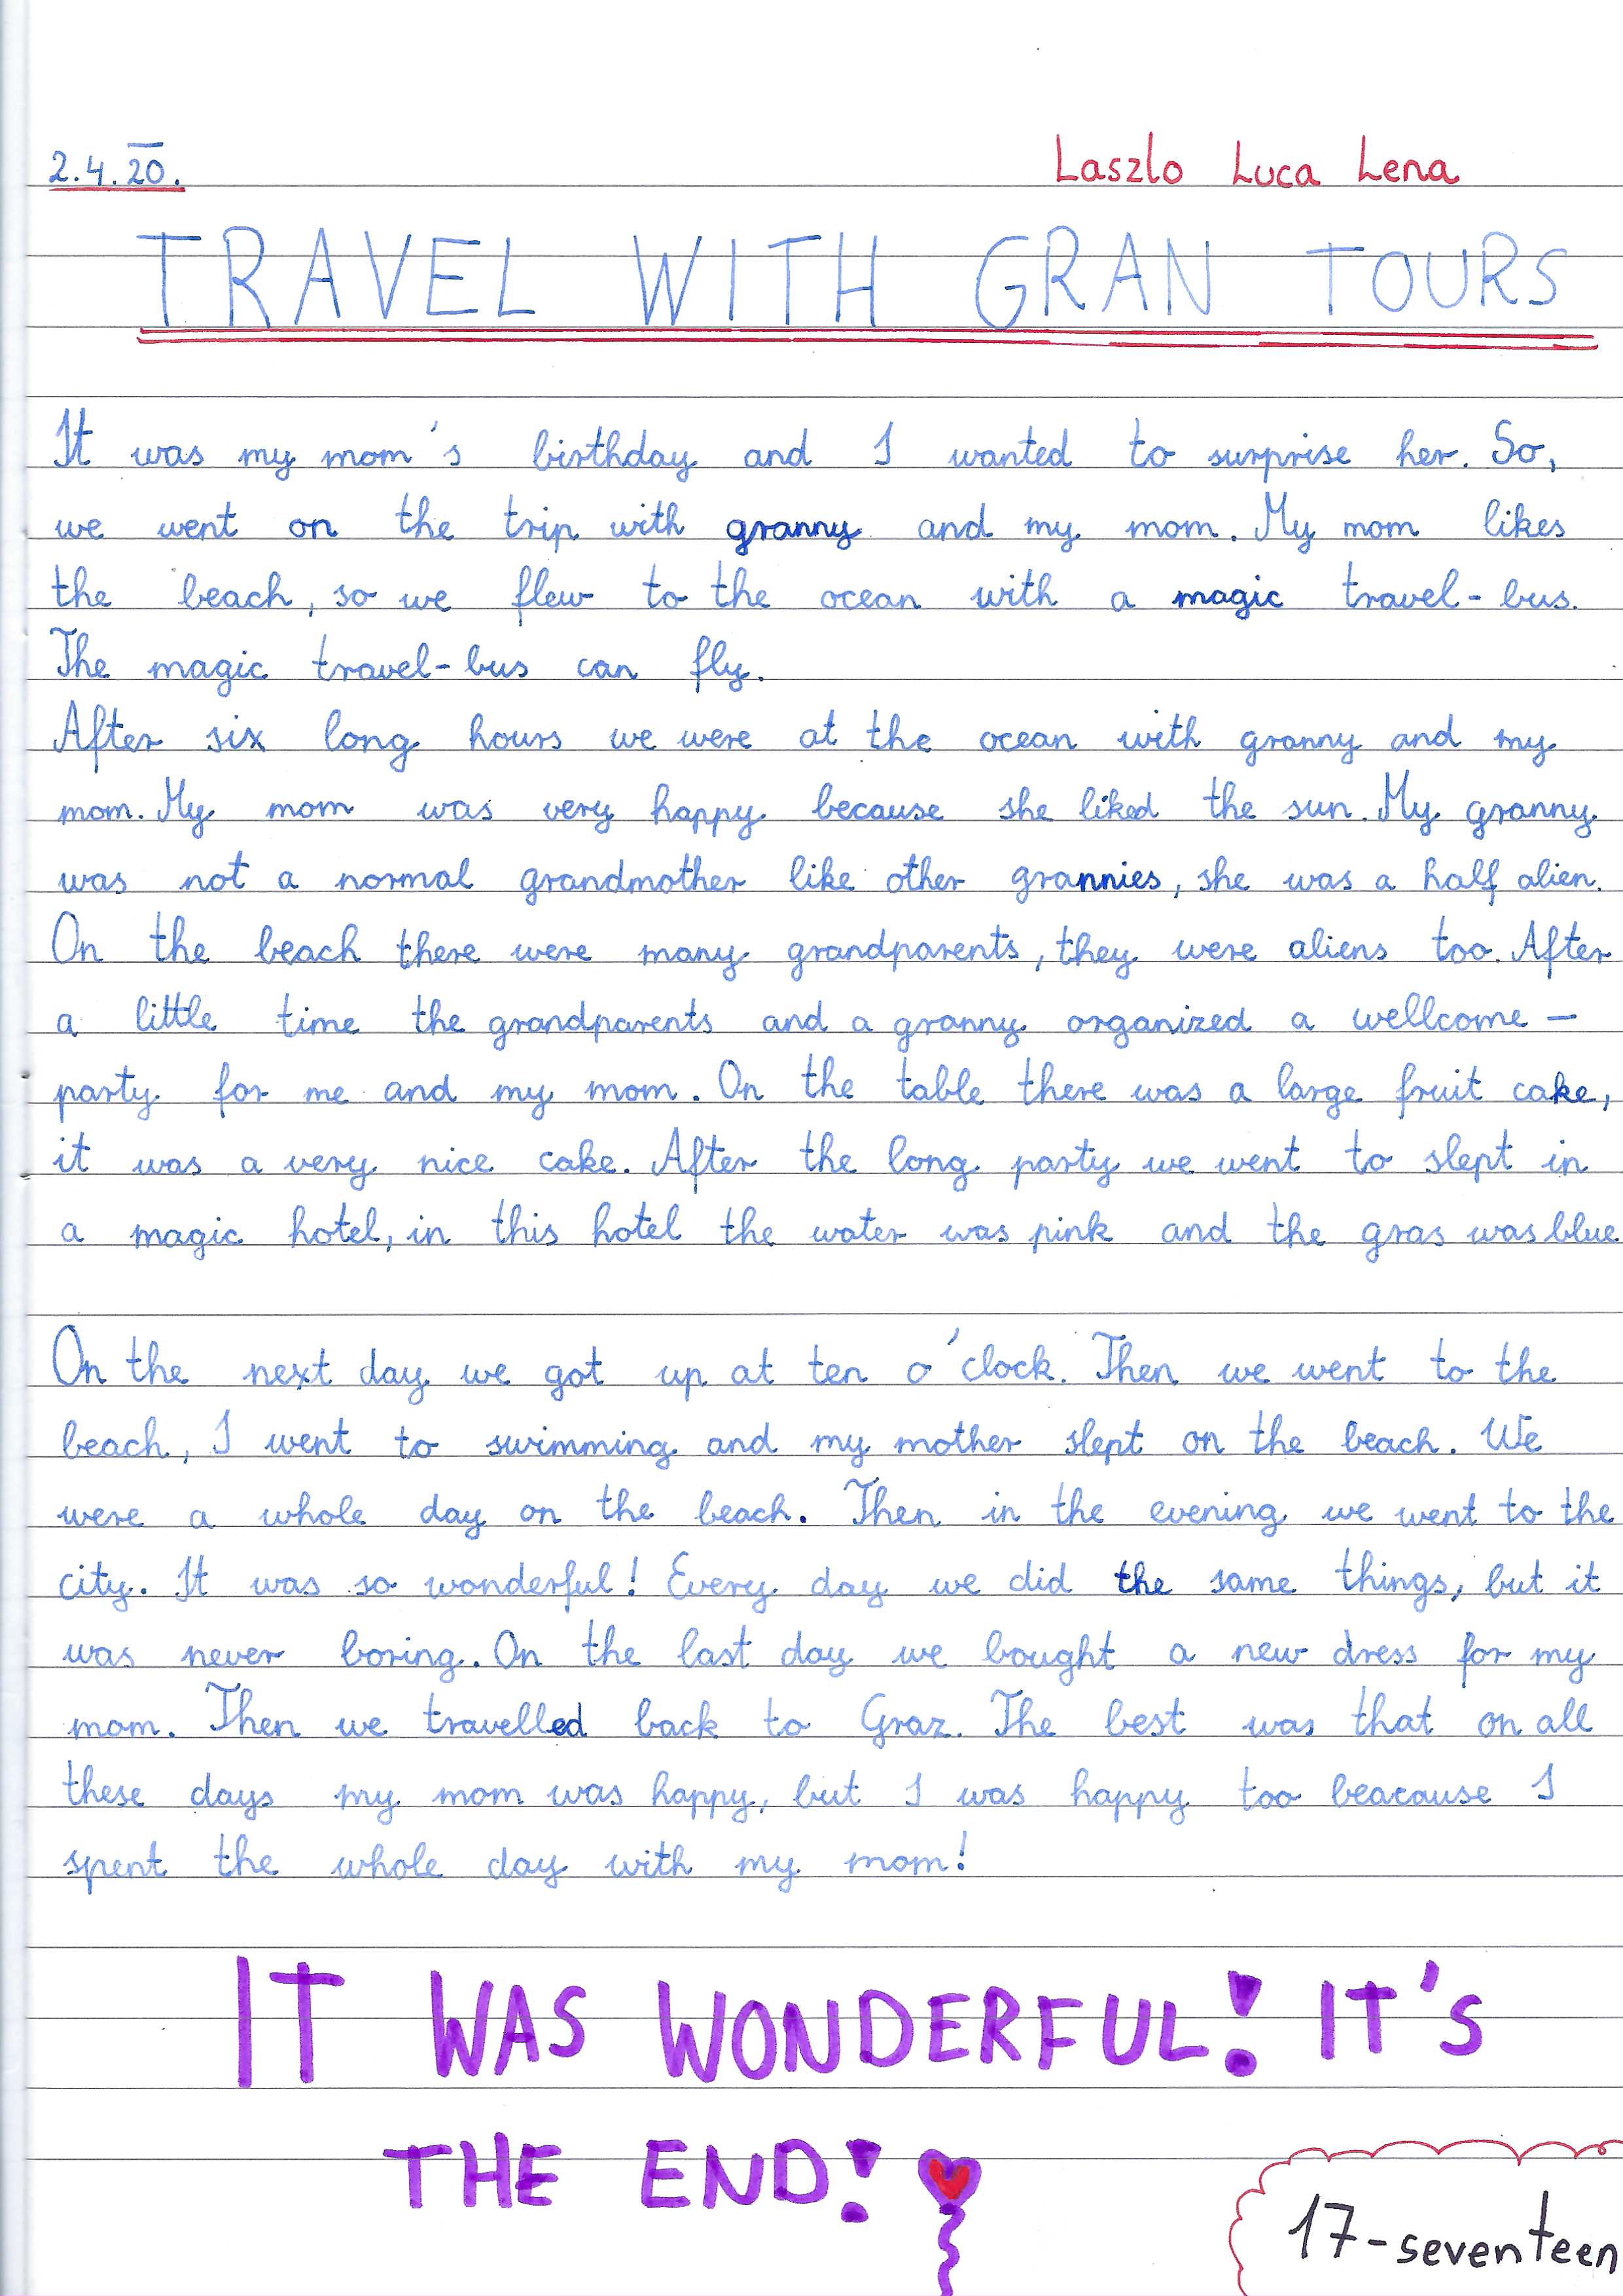 2.4.20.
Laszlo Luca Lena
TRAVEL WITH GRAN TOURS
It was my mom's birthday and I wanted to surprise her. So,
we went on the trip with granny and my mom. My mom likes
the beach, so we flew to the ocean with a magic travel-bus.
The magic travel-bus can fly.
After six long hours we were at the ocean with granny and my
mom. My mom was very happy because she liked the sun. My granny
was not a normal grandmother like other grannies, she was a half alien.
On the beach there were many grandparents, they were aliens too. After
a little time the grandparents and a granny organized a wellcome-
party for me and my mom. On the table there was a large fruit cake,
it was a very nice cake. After the long party we went to slept in
a magic hotel, in this hotel the water was pink and the gras was blue
On the next day we got up at ten o'clock. Then we went to the
beach, I went to swimming and my mother slept on the beach. We
were a whole day on the beach. Then in the evening we went to the
city. It was so wonderful! Every day we did the same things, but it
was never boring. On the last day we bought a new dress for my
mom. Then we travelled back to Graz. The best was that on all
these days my mom was happy, but I was happy too beacause I
spent the whole day with my mom!
IT WAS WONDERFUL! IT'S
THE END!
17-seventeen